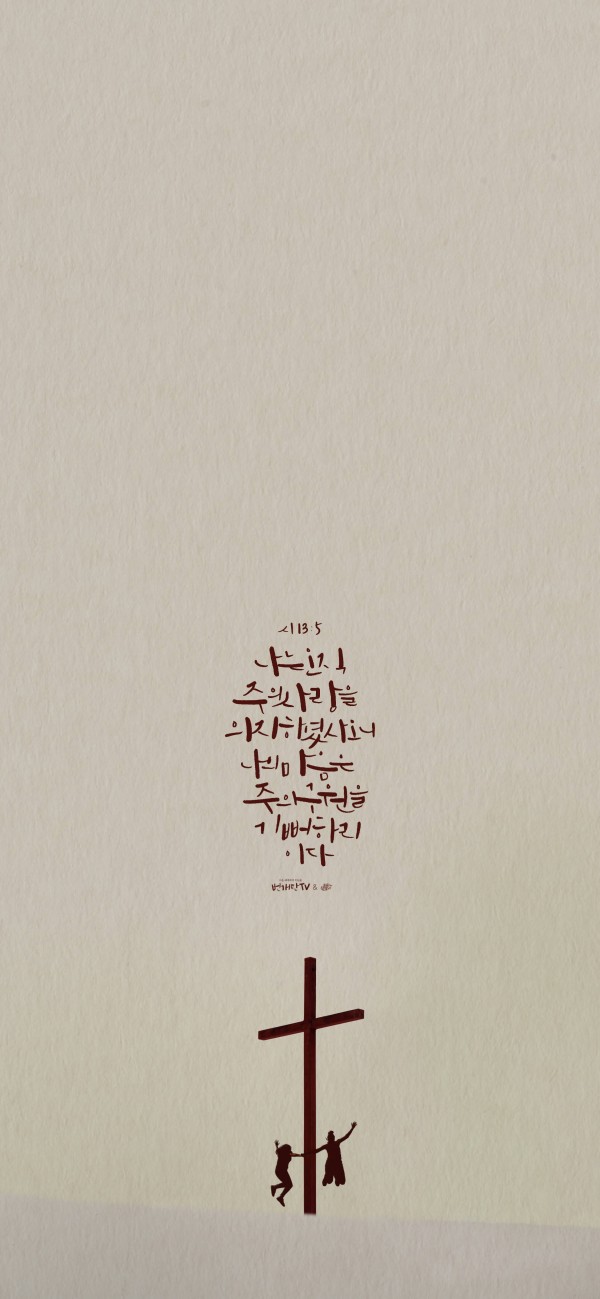 시 13:5
나는 오직
주의 사랑을
의지하였사오니
나의 마음은
주의 구원을
기뻐하리
이다
번개탄TV &